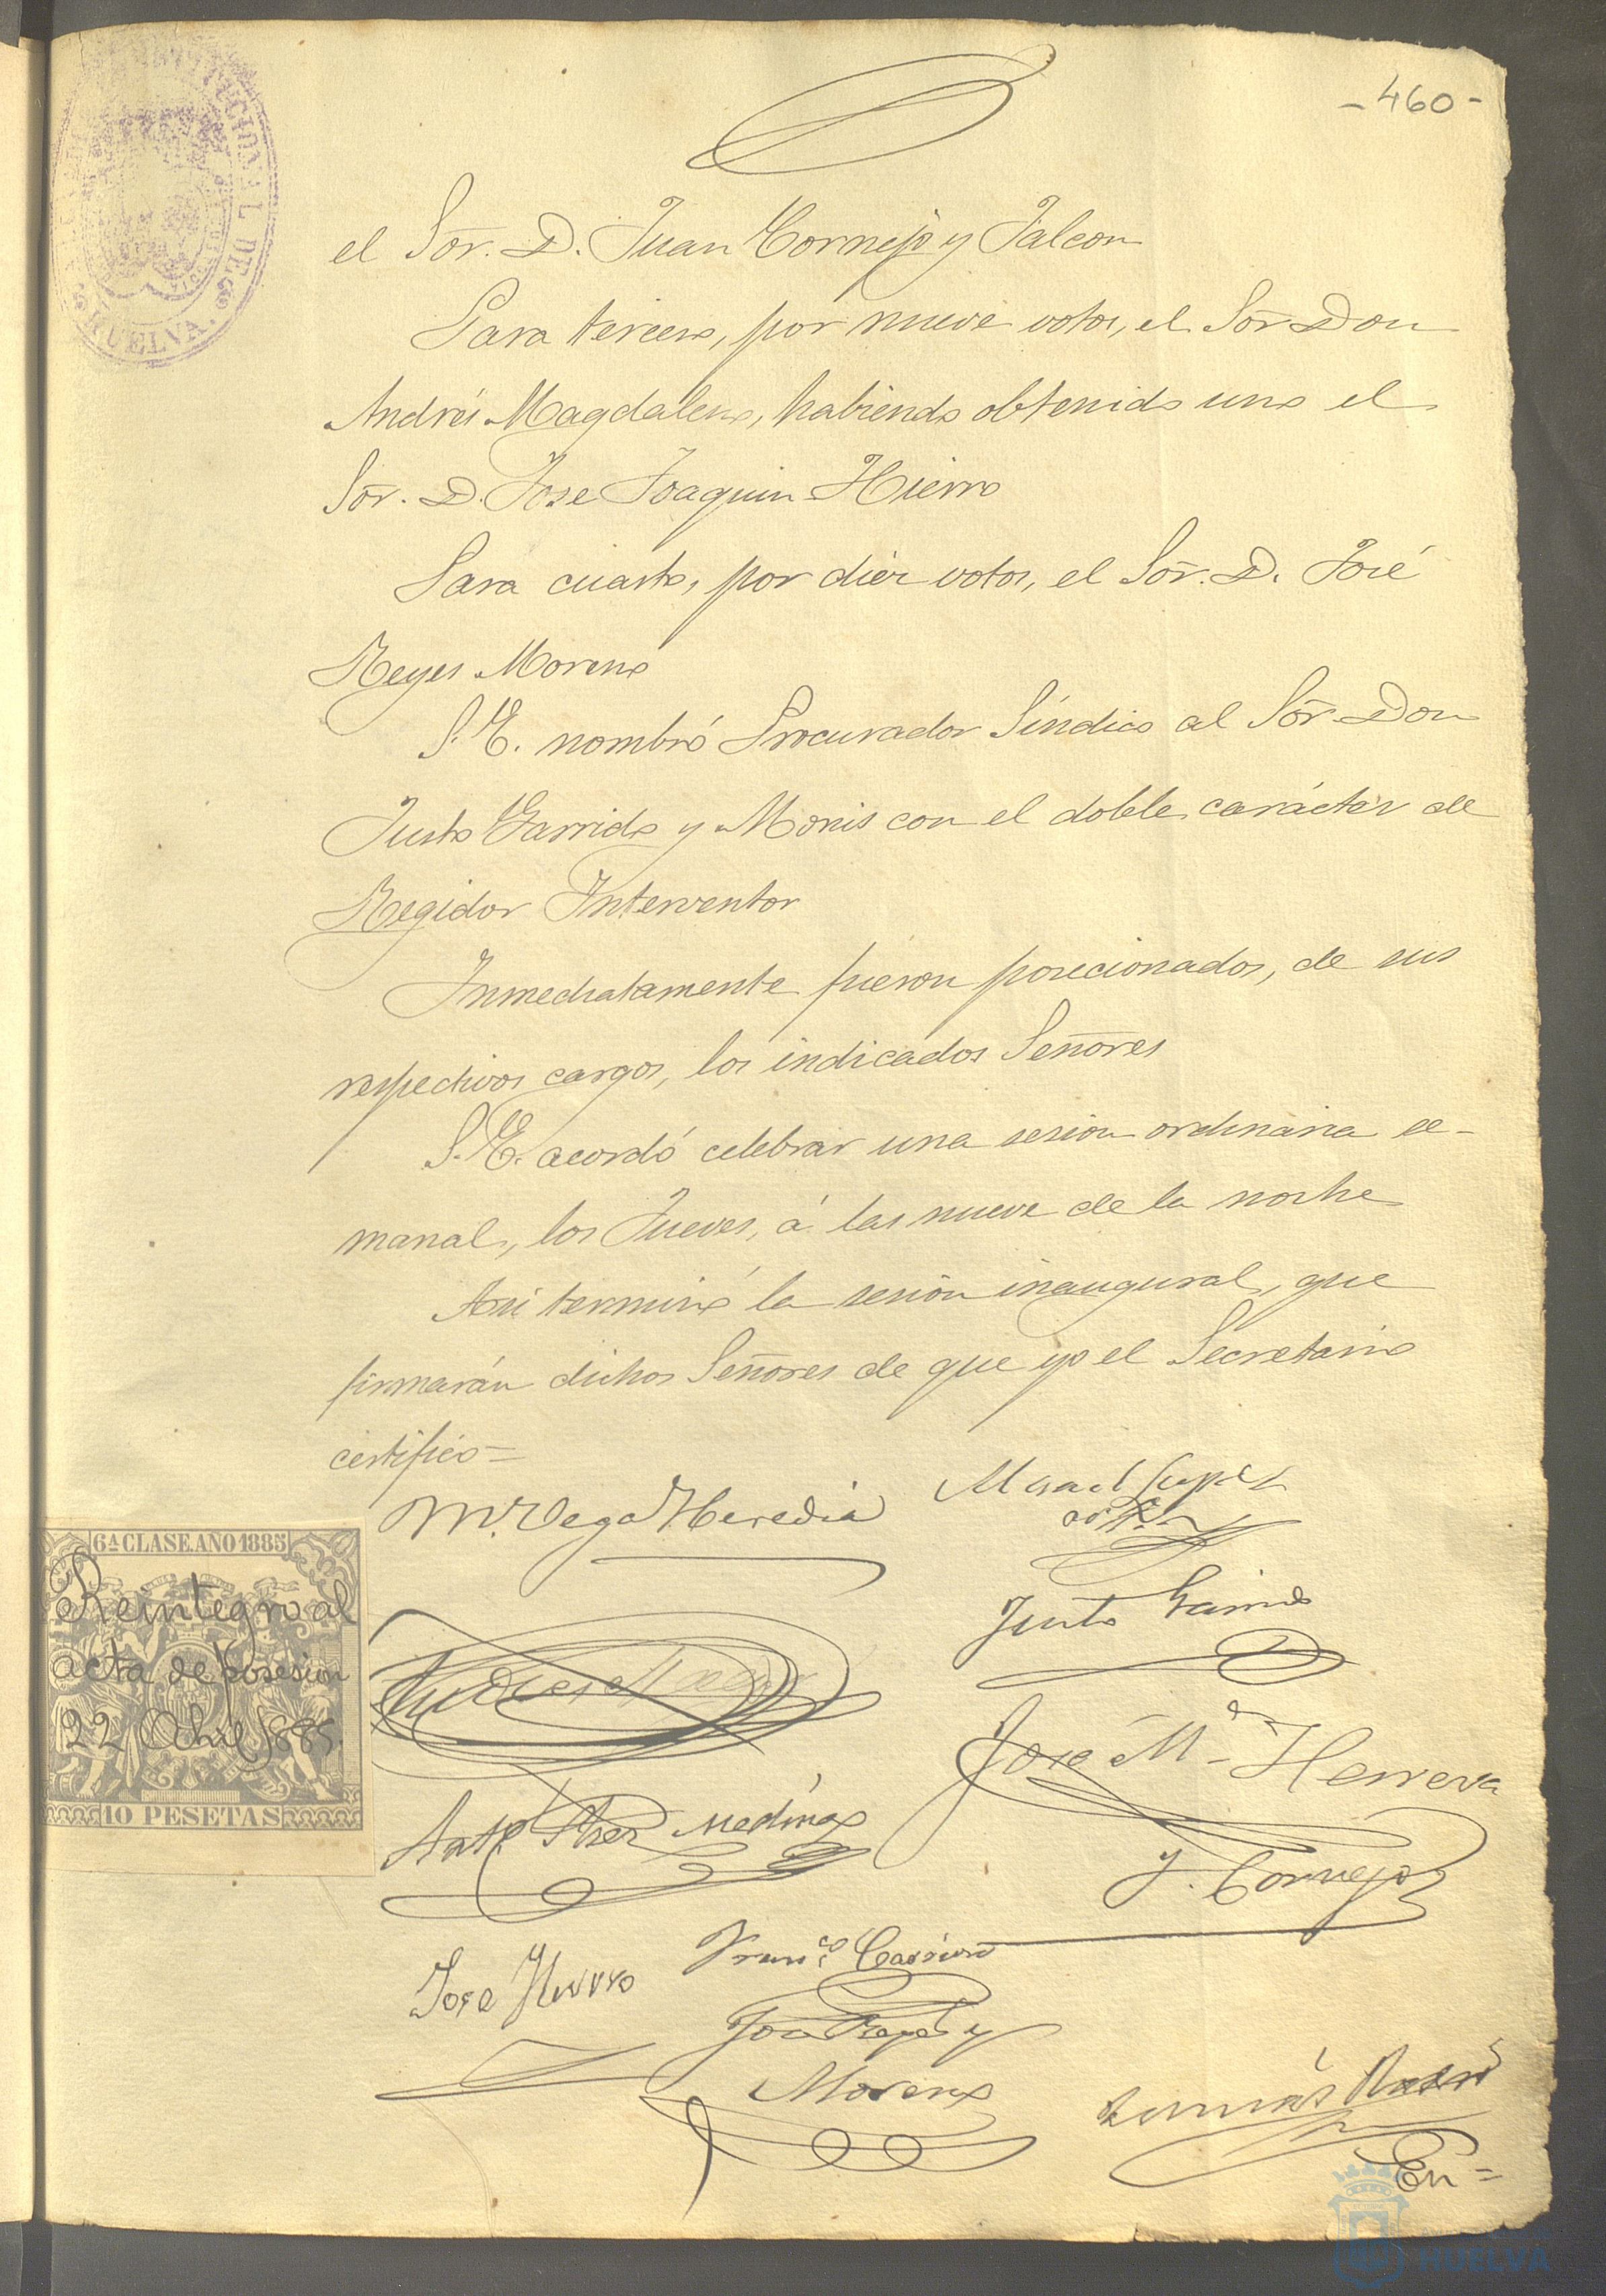 -460-
el Sõr. D. Juan Cornejo y Falcon
Para tercero, por nueve votos, el Sõr Don
Andrés Magdalena, habiendo obtenido uno el
Sõr. D. Jose Joaquin Hierro
Para cuarto, por diez votos, el Sõr. D. José
Reyes Moreno
S. E. nombró Procurador Síndico al Sõr Don
Justo Garrido y Monis con el doble carácter de
Regidor Interventor
Inmediatamente fueron posecionados, de sus
respectivos cargos, los indicados Señores
S. E. acordó celebrar una sesion ordinaria se-
manal, los Jueves, á las nueve de la noche
Asi terminó la sesion inaugural, que
firmarán dichos Señores de que yo el Secretario
certifico=
M. Vega Heredia
Justo Garrido
6ª CLASE. AÑO 1885
Reintegro al
acta de posesion
22 Abril 1885.
10 PESETAS
José Mª Herrera
Medina
J. Cornejo
Jose Hierro
Franco
Jose Reyes y
Moreno
En=
HUELVA
HUELVA